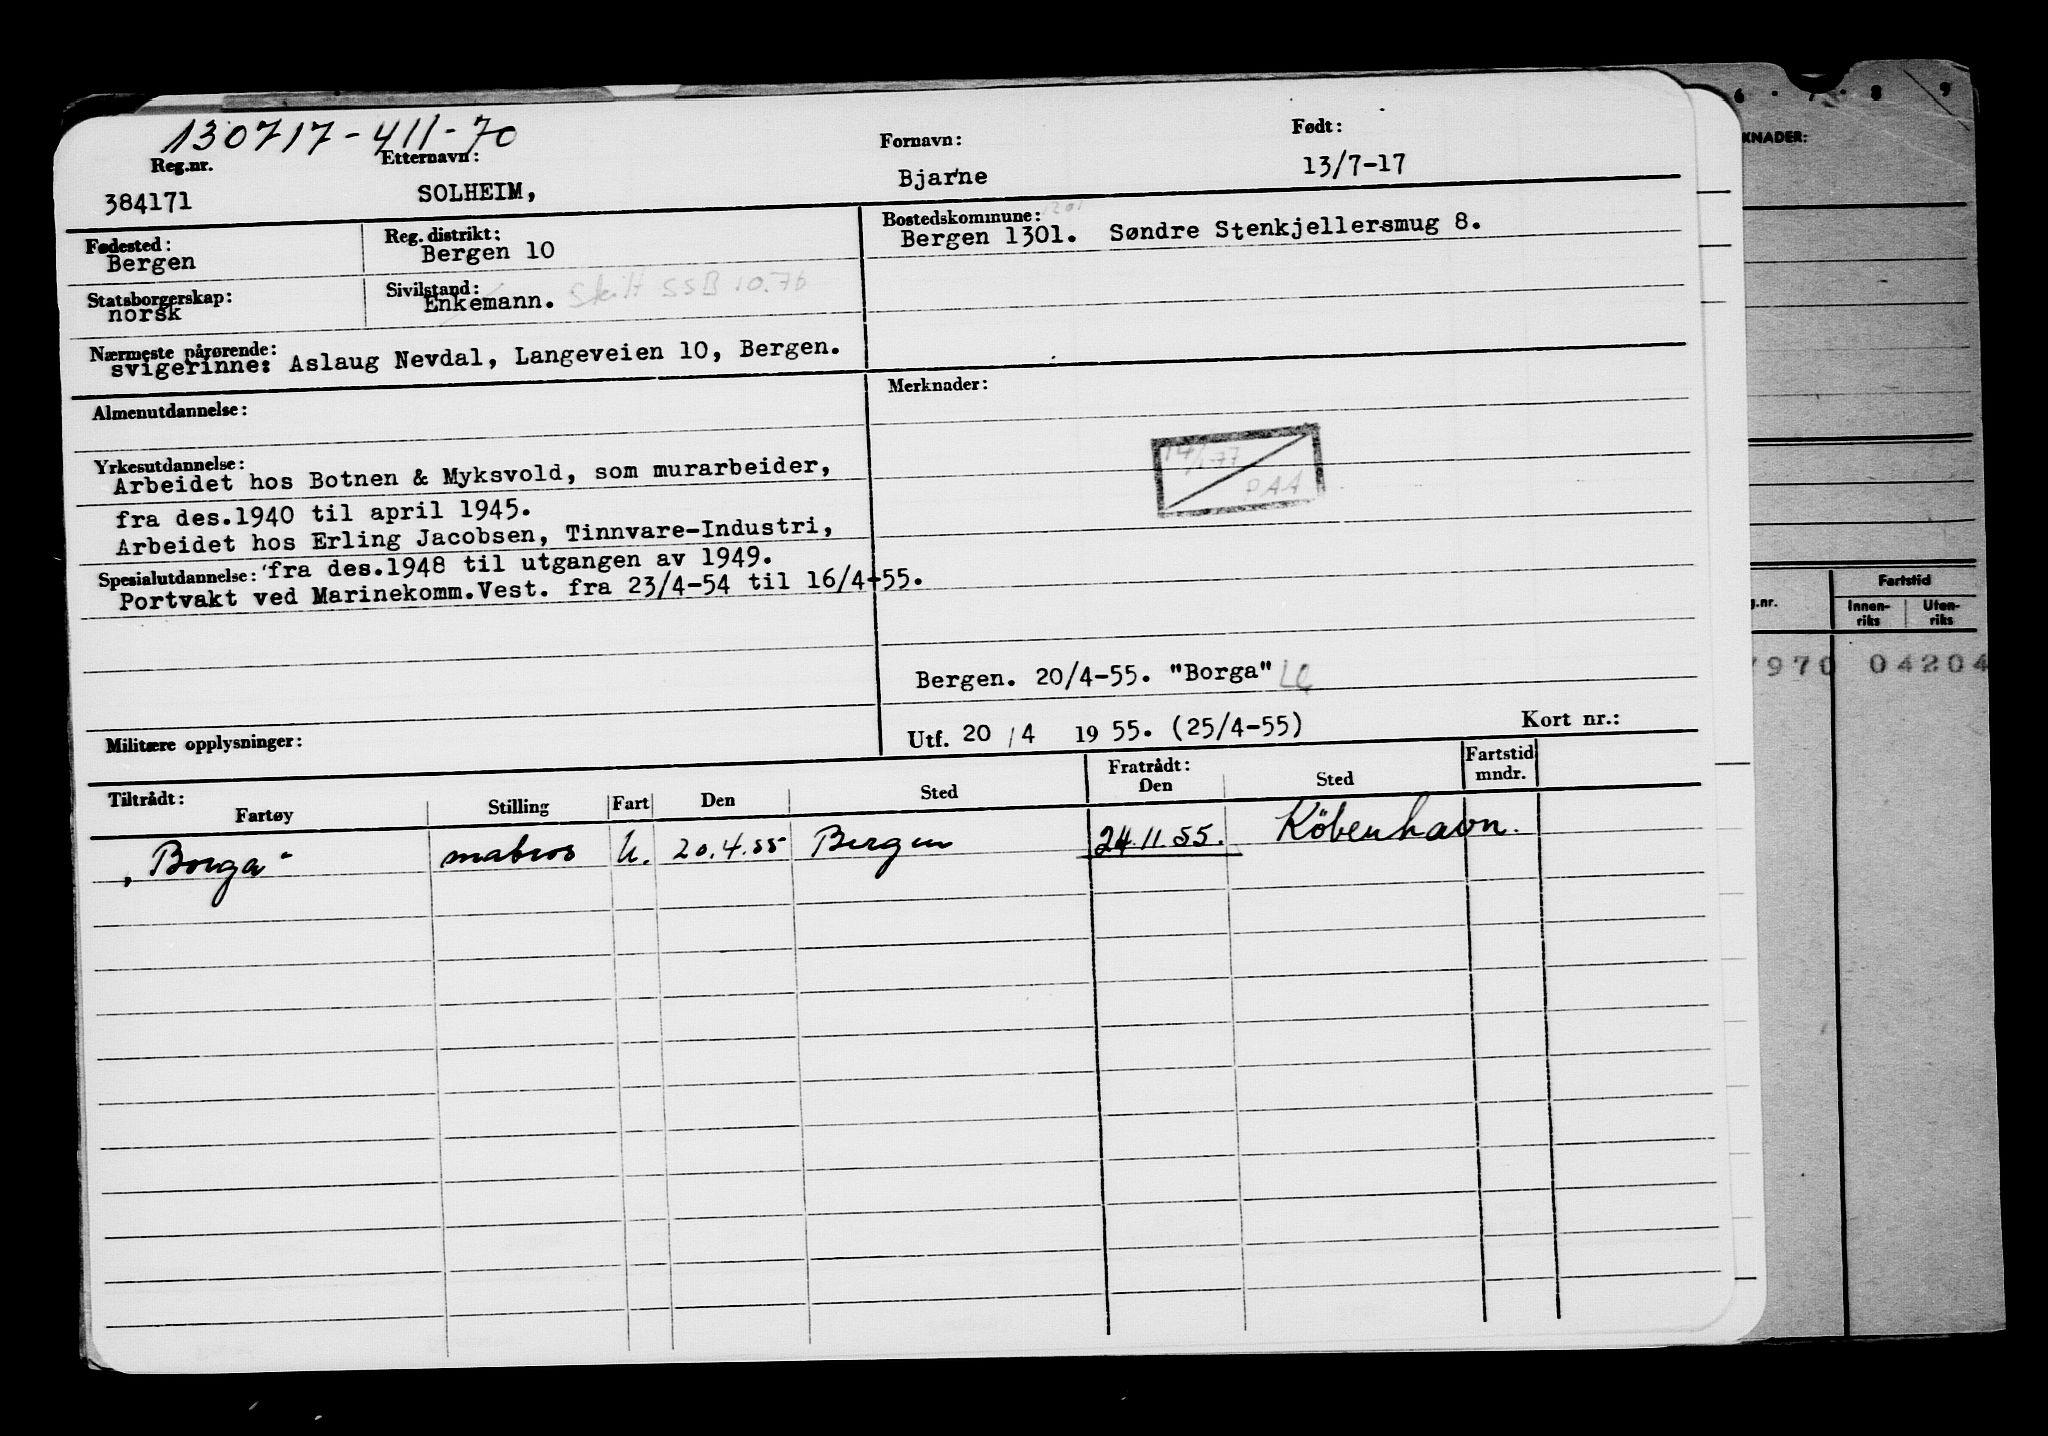 130717-411-70
Reg.nr. Etternavn: Fornavn: Født:
384171 SOLHEIM, Bjarne 13/7-17
Fødested: Reg. distrikt: Bostedskommune: 1201
Bergen Bergen 10 Bergen 1301. Søndre Stenkjellersmug 8.
Statsborgerskap: Sivilstand:
norsk Enkemann. Skilt SSB 10.76
Nærmeste pårørende:
svigerinne: Aslaug Nevdal, Langeveien 10, Bergen.
Almenutdannelse: Merknader:
Yrkesutdannelse:
Arbeidet hos Botnen & Myksvold, som murarbeider,
fra des.1940 til april 1945.
Arbeidet hos Erling Jacobsen, Tinnvare-Industri,
Spesialutdannelse: fra des.1948 til utgangen av 1949.
Portvakt ved Marinekomm.Vest. fra 23/4-54 til 16/4-55.
PAA
Bergen. 20/4-55. "Borga"
Militære opplysninger: Utf. 20/4 1955. (25/4-55) Kort nr.:
Tiltrådt: Fratrådt: Fartstid
Fartøy Stilling Fart Den Sted Den Sted mndr.
"Borga" matros U. 20.4.55 Bergen 24.11.55. Köbenhavn.
6 7 8 9
KNADER:
Fartstid
g.nr. Innen-riks Uten-riks
970 04204